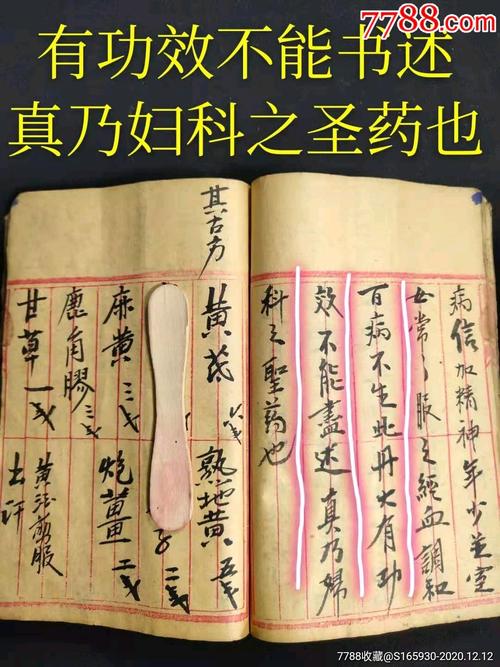 7788.com
有功效不能书述
真乃妇科之圣药也
病信加精神年少并室
女常々服之經血調和
百病不生此丹大有功
效不能盡述真乃婦
科之聖药也
其古方
黄芪 六戋 熟地黄 五戋
子 二戋
麻黄 三戋 炮薑 二戋
鹿角膠 三戋
甘草 一戋 黄酒煎服
出汗
7788收藏@S165930-2020.12.12